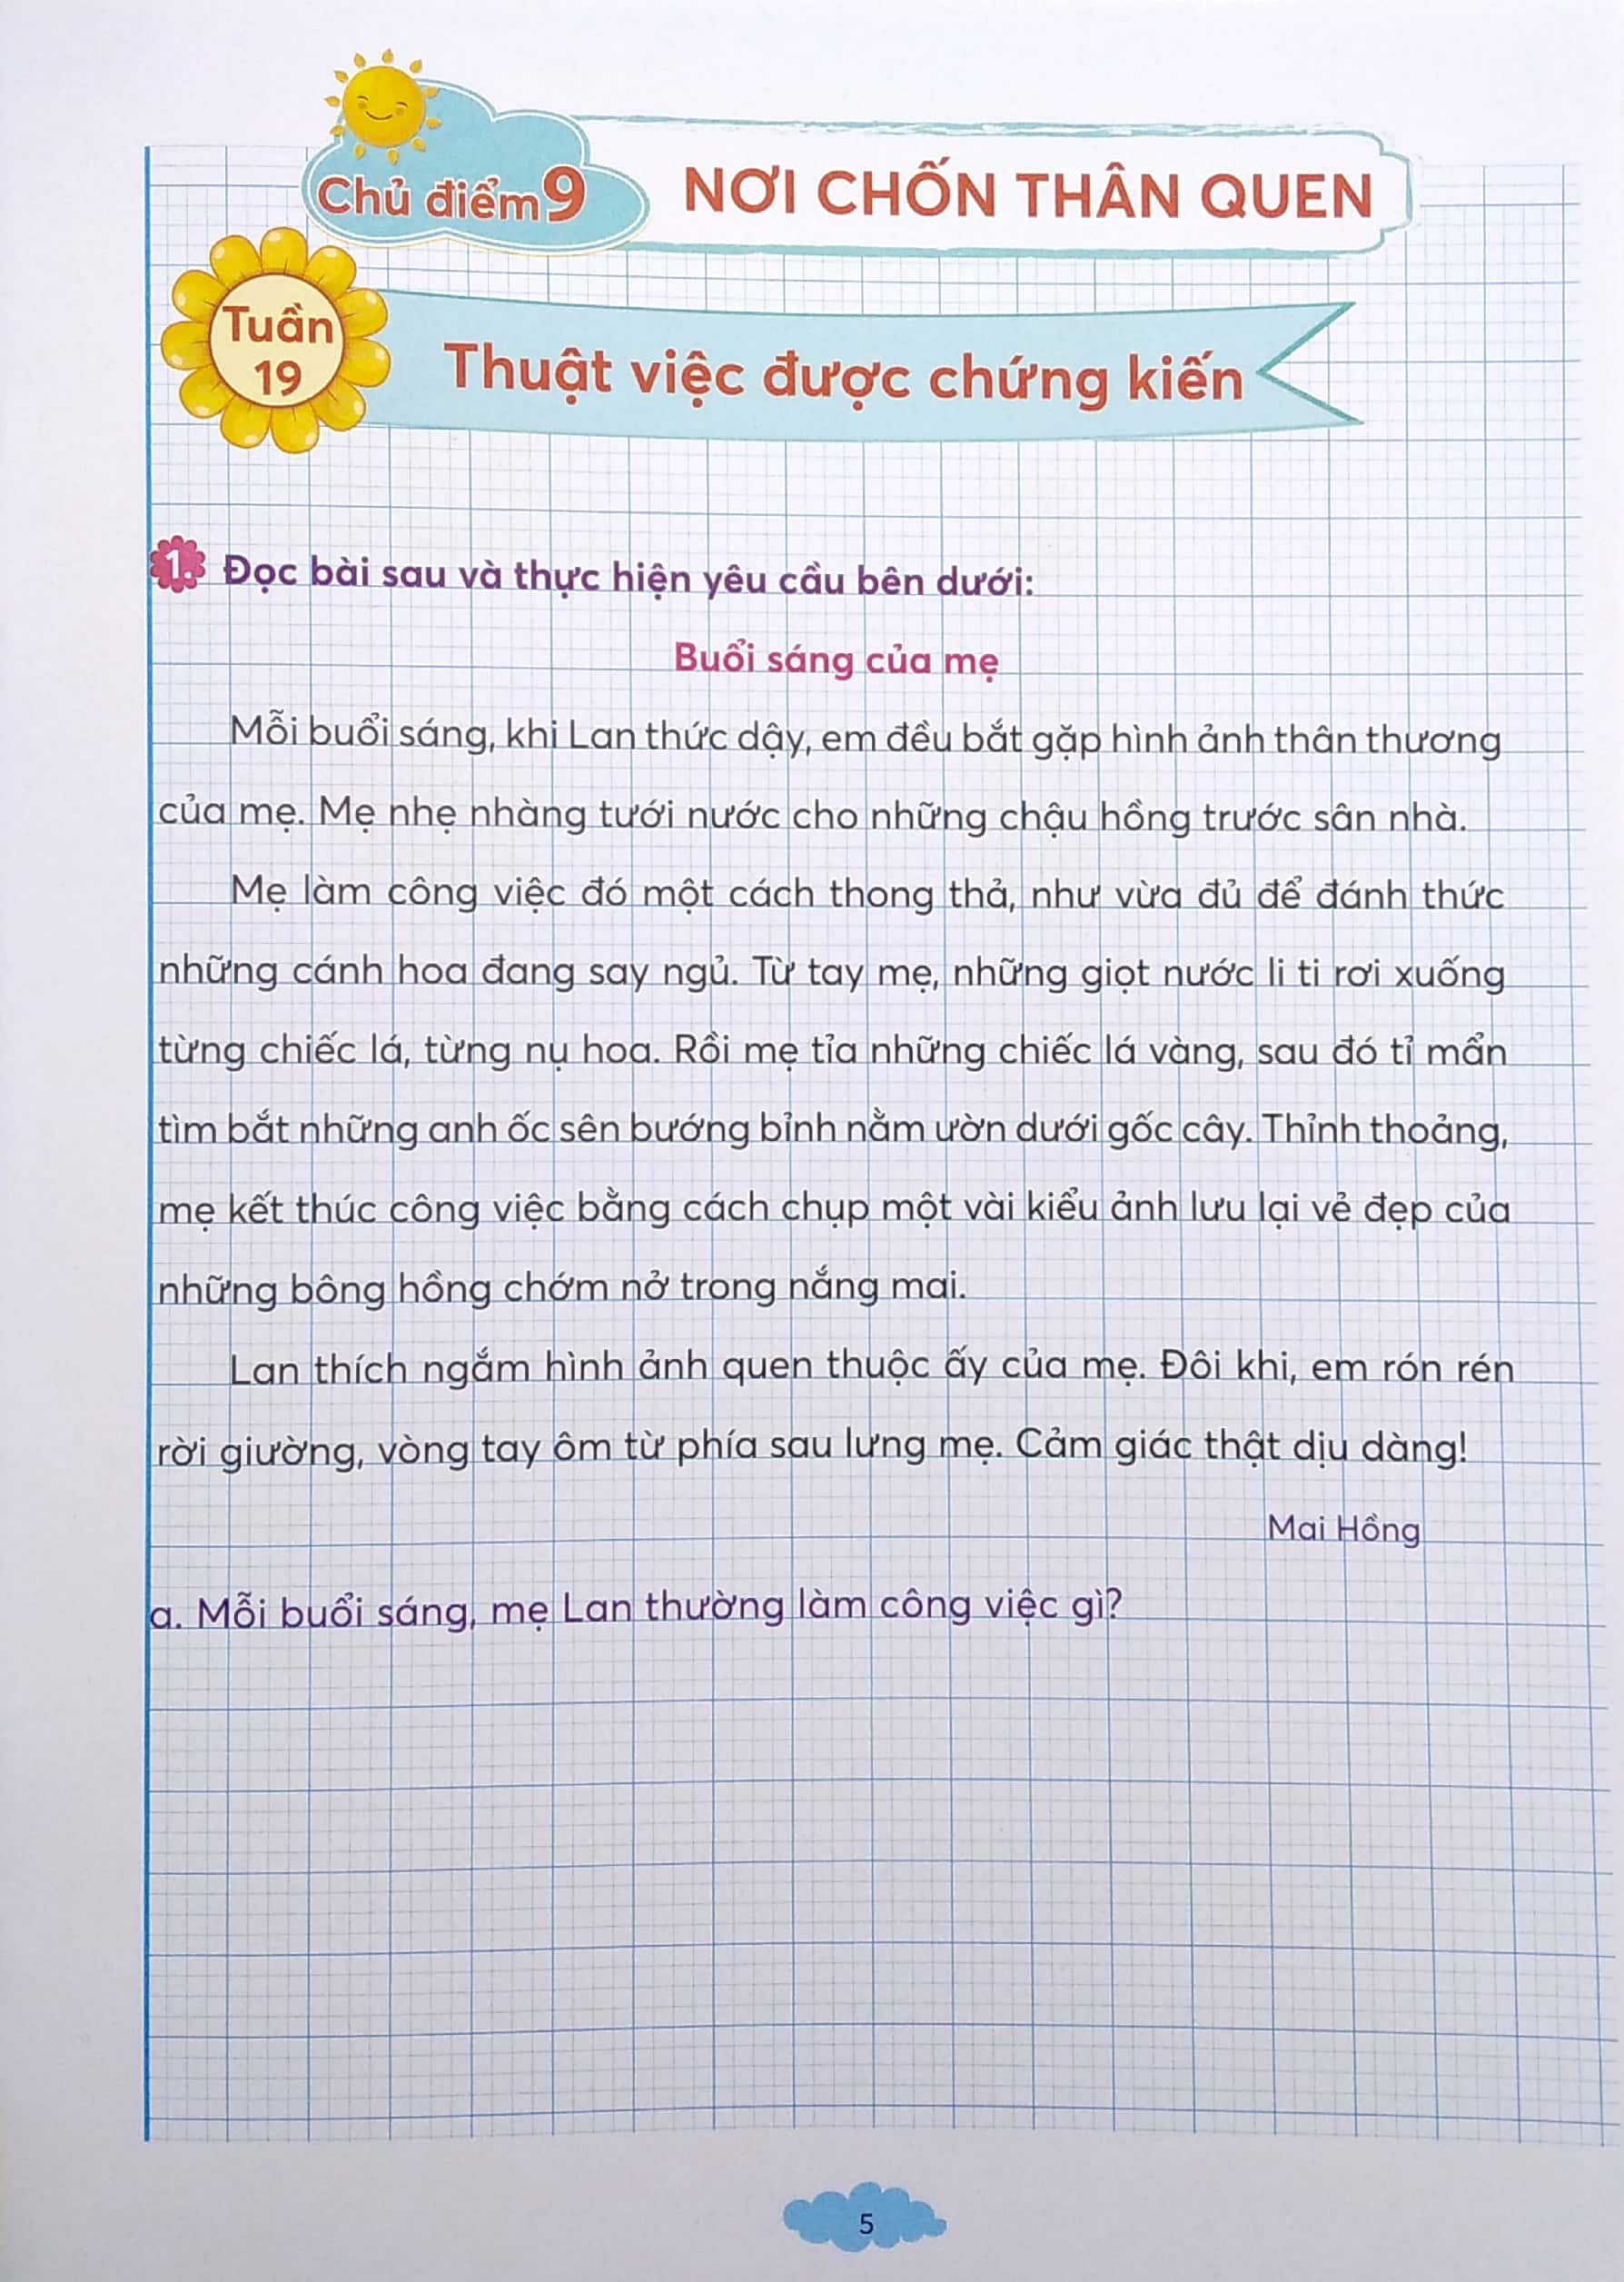 Chủ điểm 9
NƠI CHỐN THÂN QUEN
Tuần
19
Thuật việc được chứng kiến
1. Đọc bài sau và thực hiện yêu cầu bên dưới:
Buổi sáng của mẹ
Mỗi buổi sáng, khi Lan thức dậy, em đều bắt gặp hình ảnh thân thương
của mẹ. Mẹ nhẹ nhàng tưới nước cho những chậu hồng trước sân nhà.
Mẹ làm công việc đó một cách thong thả, như vừa đủ để đánh thức
những cánh hoa đang say ngủ. Từ tay mẹ, những giọt nước li ti rơi xuống
từng chiếc lá, từng nụ hoa. Rồi mẹ tỉa những chiếc lá vàng, sau đó tỉ mẩn
tìm bắt những anh ốc sên bướng bỉnh nằm ườn dưới gốc cây. Thỉnh thoảng,
mẹ kết thúc công việc bằng cách chụp một vài kiểu ảnh lưu lại vẻ đẹp của
những bông hồng chớm nở trong nắng mai.
Lan thích ngắm hình ảnh quen thuộc ấy của mẹ. Đôi khi, em rón rén
rời giường, vòng tay ôm từ phía sau lưng mẹ. Cảm giác thật dịu dàng!
Mai Hồng
a. Mỗi buổi sáng, mẹ Lan thường làm công việc gì?
5